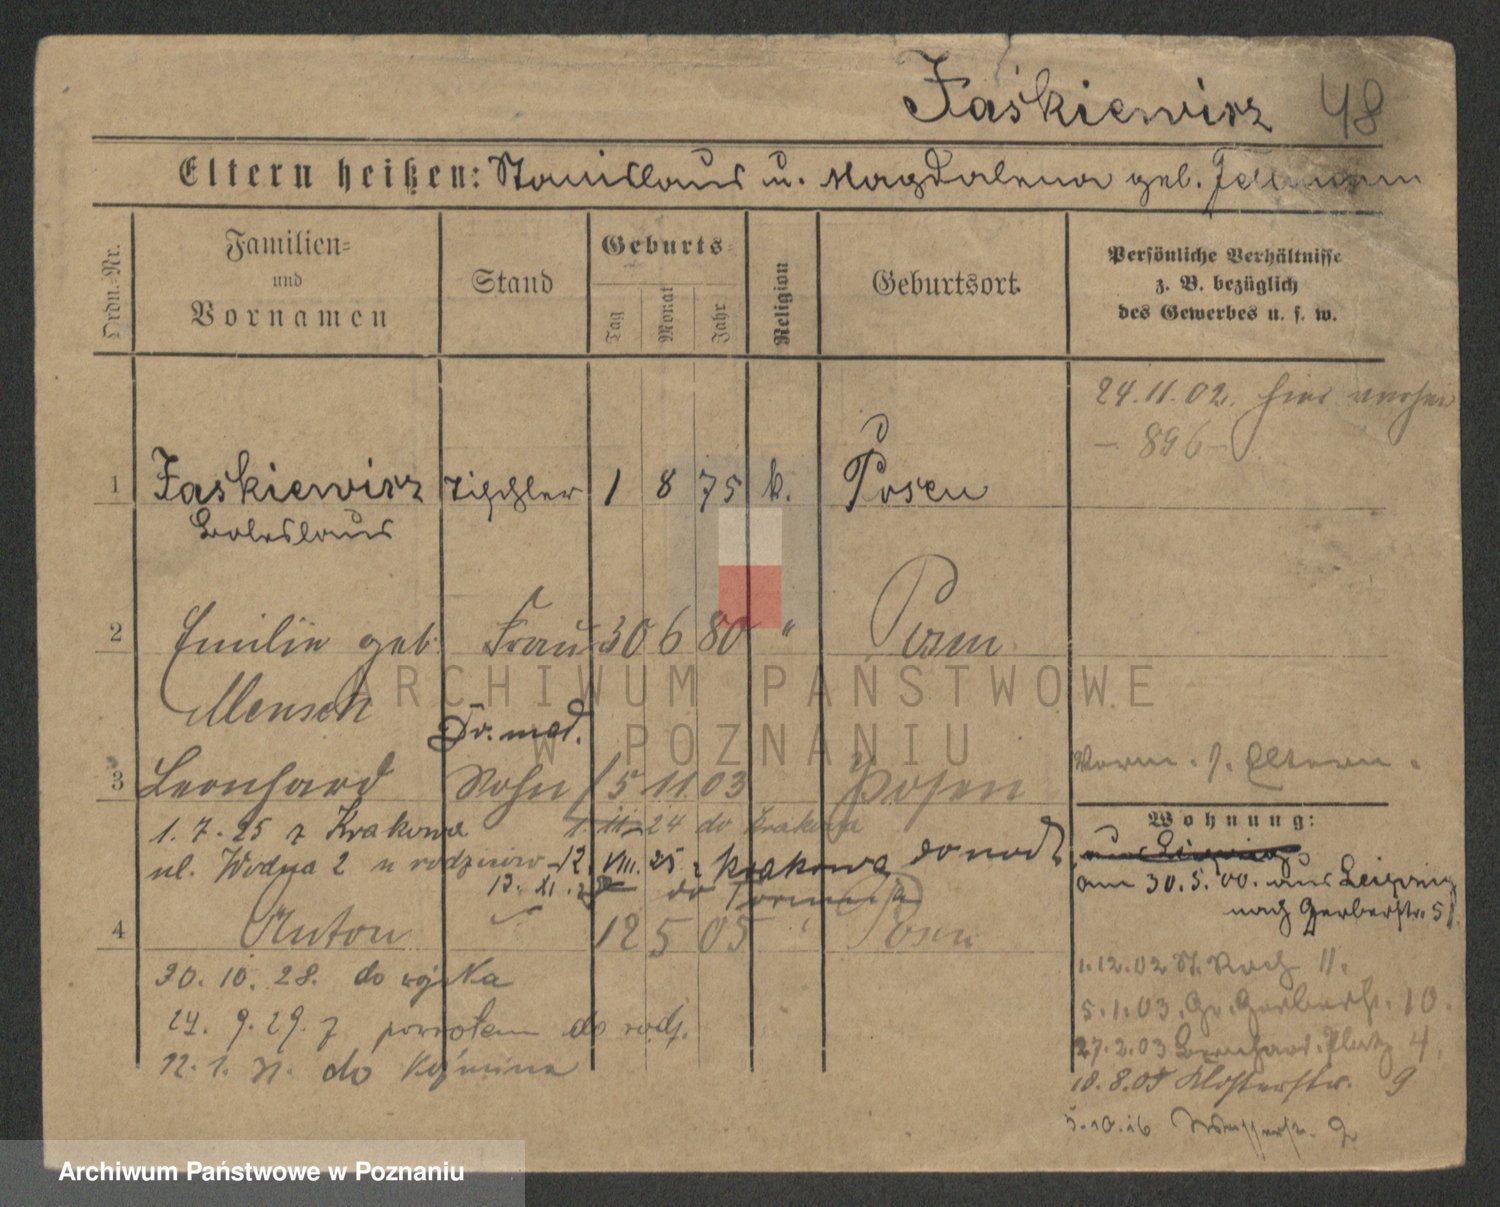 Jaśkiewicz 48
Eltern heißen: Stanislaus u. Magdalena geb.
Ordn.-Nr.
Familien=
und
Vornamen
Stand
Geburts=
Tag
Monat
Jahr
Religion
Geburtsort.
Persönliche Verhältnisse
z. B. bezüglich
des Gewerbes u. s. w.
24.11.02. hier
- 896 -
1 Jaśkiewicz Tischler 1 8 75 k. Posen
Boleslaus
2 Emilie geb. Frau 30 6 80 " Posen
Mensch
Dr. med.
3 Leonhard Sohn 15 11 03 Posen
Vorm. s. Eltern.
Wohnung:
1. 7. 25 z Krakowa 1. 11. 24 do Krakowa
ul. Wodna 2 u rodziców 12. VIII. 25 z Krakowa do rodz.
aus Leipzig
am 30.5.00. aus Leipzig
nach Gerberstr. 51.
13. XI. do Torunia
4 Anton 12 5 05 " Posen
30. 10. 28. do wojska
24. 9. 29. z powrotem do rodz.
12. 1. do
1.12.02 St. Roch 11.
5.1.03. Gr. Gerberstr. 10.
27.2.03 Bernhard. Platz 4.
10.8.05 Klosterstr. 9
5.10.16 Wasserstr. 2
ARCHIWUM PAŃSTWOWE
W POZNANIU
Archiwum Państwowe w Poznaniu